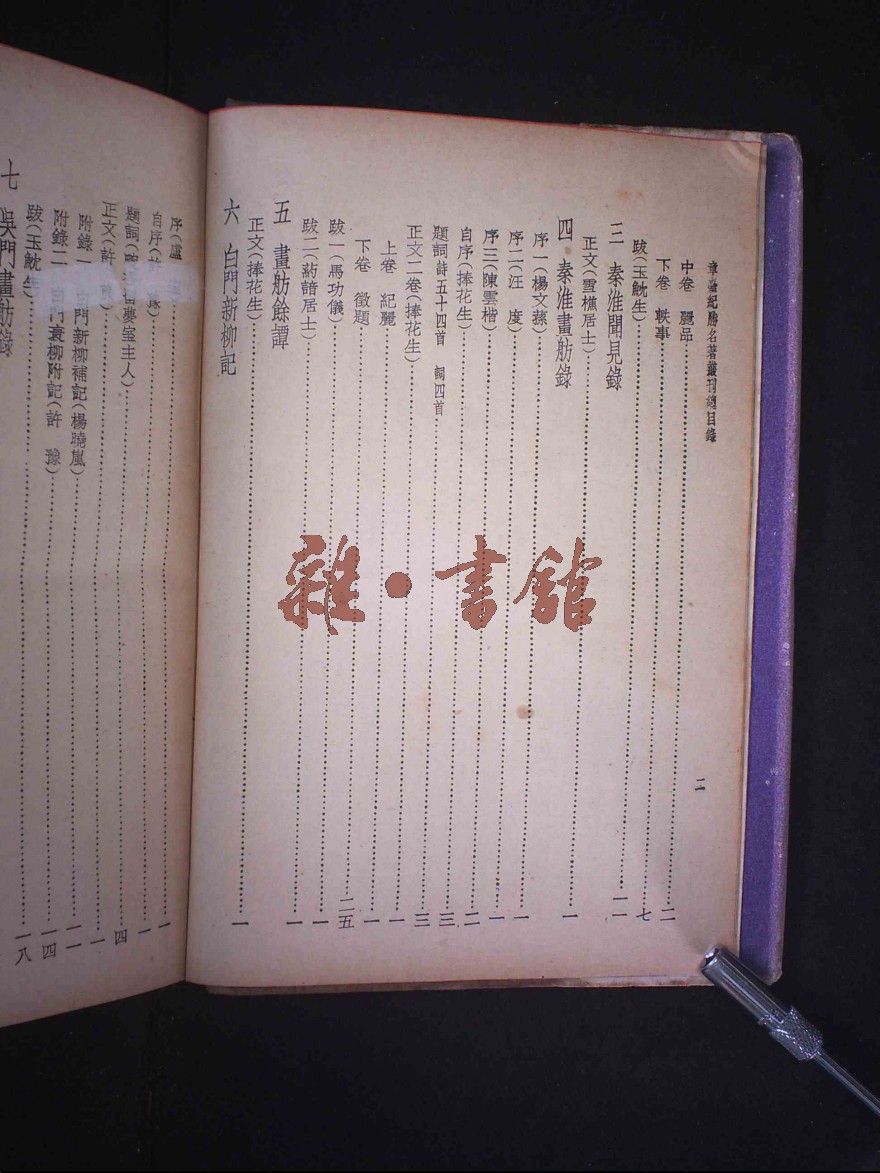 章臺紀勝名著叢刊總目錄
二
中卷 麗品 二
下卷 軼事 七
跋(玉魫生) 一一
三 秦淮聞見錄
正文(雪樵居士) 一
四 秦淮畫舫錄
序一(楊文蓀) 一
序二(汪 度) 一
序三(陳雲楷) 二
自序(捧花生) 三
題詞 詩五十四首 詞四首 三
正文二卷(捧花生) 一
上卷 紀麗 一
下卷 徵題 二五
跋一(馬功儀) 一
跋二(藥諳居士) 一
五 畫舫餘譚
正文(捧花生) 一
六 白門新柳記
序(盧 一
自序( 豫) 一
題詞( 夢室主人) 四
正文(許 一
附錄一 白門新柳補記(楊曉嵐) 一一
附錄二 白門衰柳附記(許 豫) 一四
跋(玉魫生) 一八
七 吳門畫舫錄
雜·書館